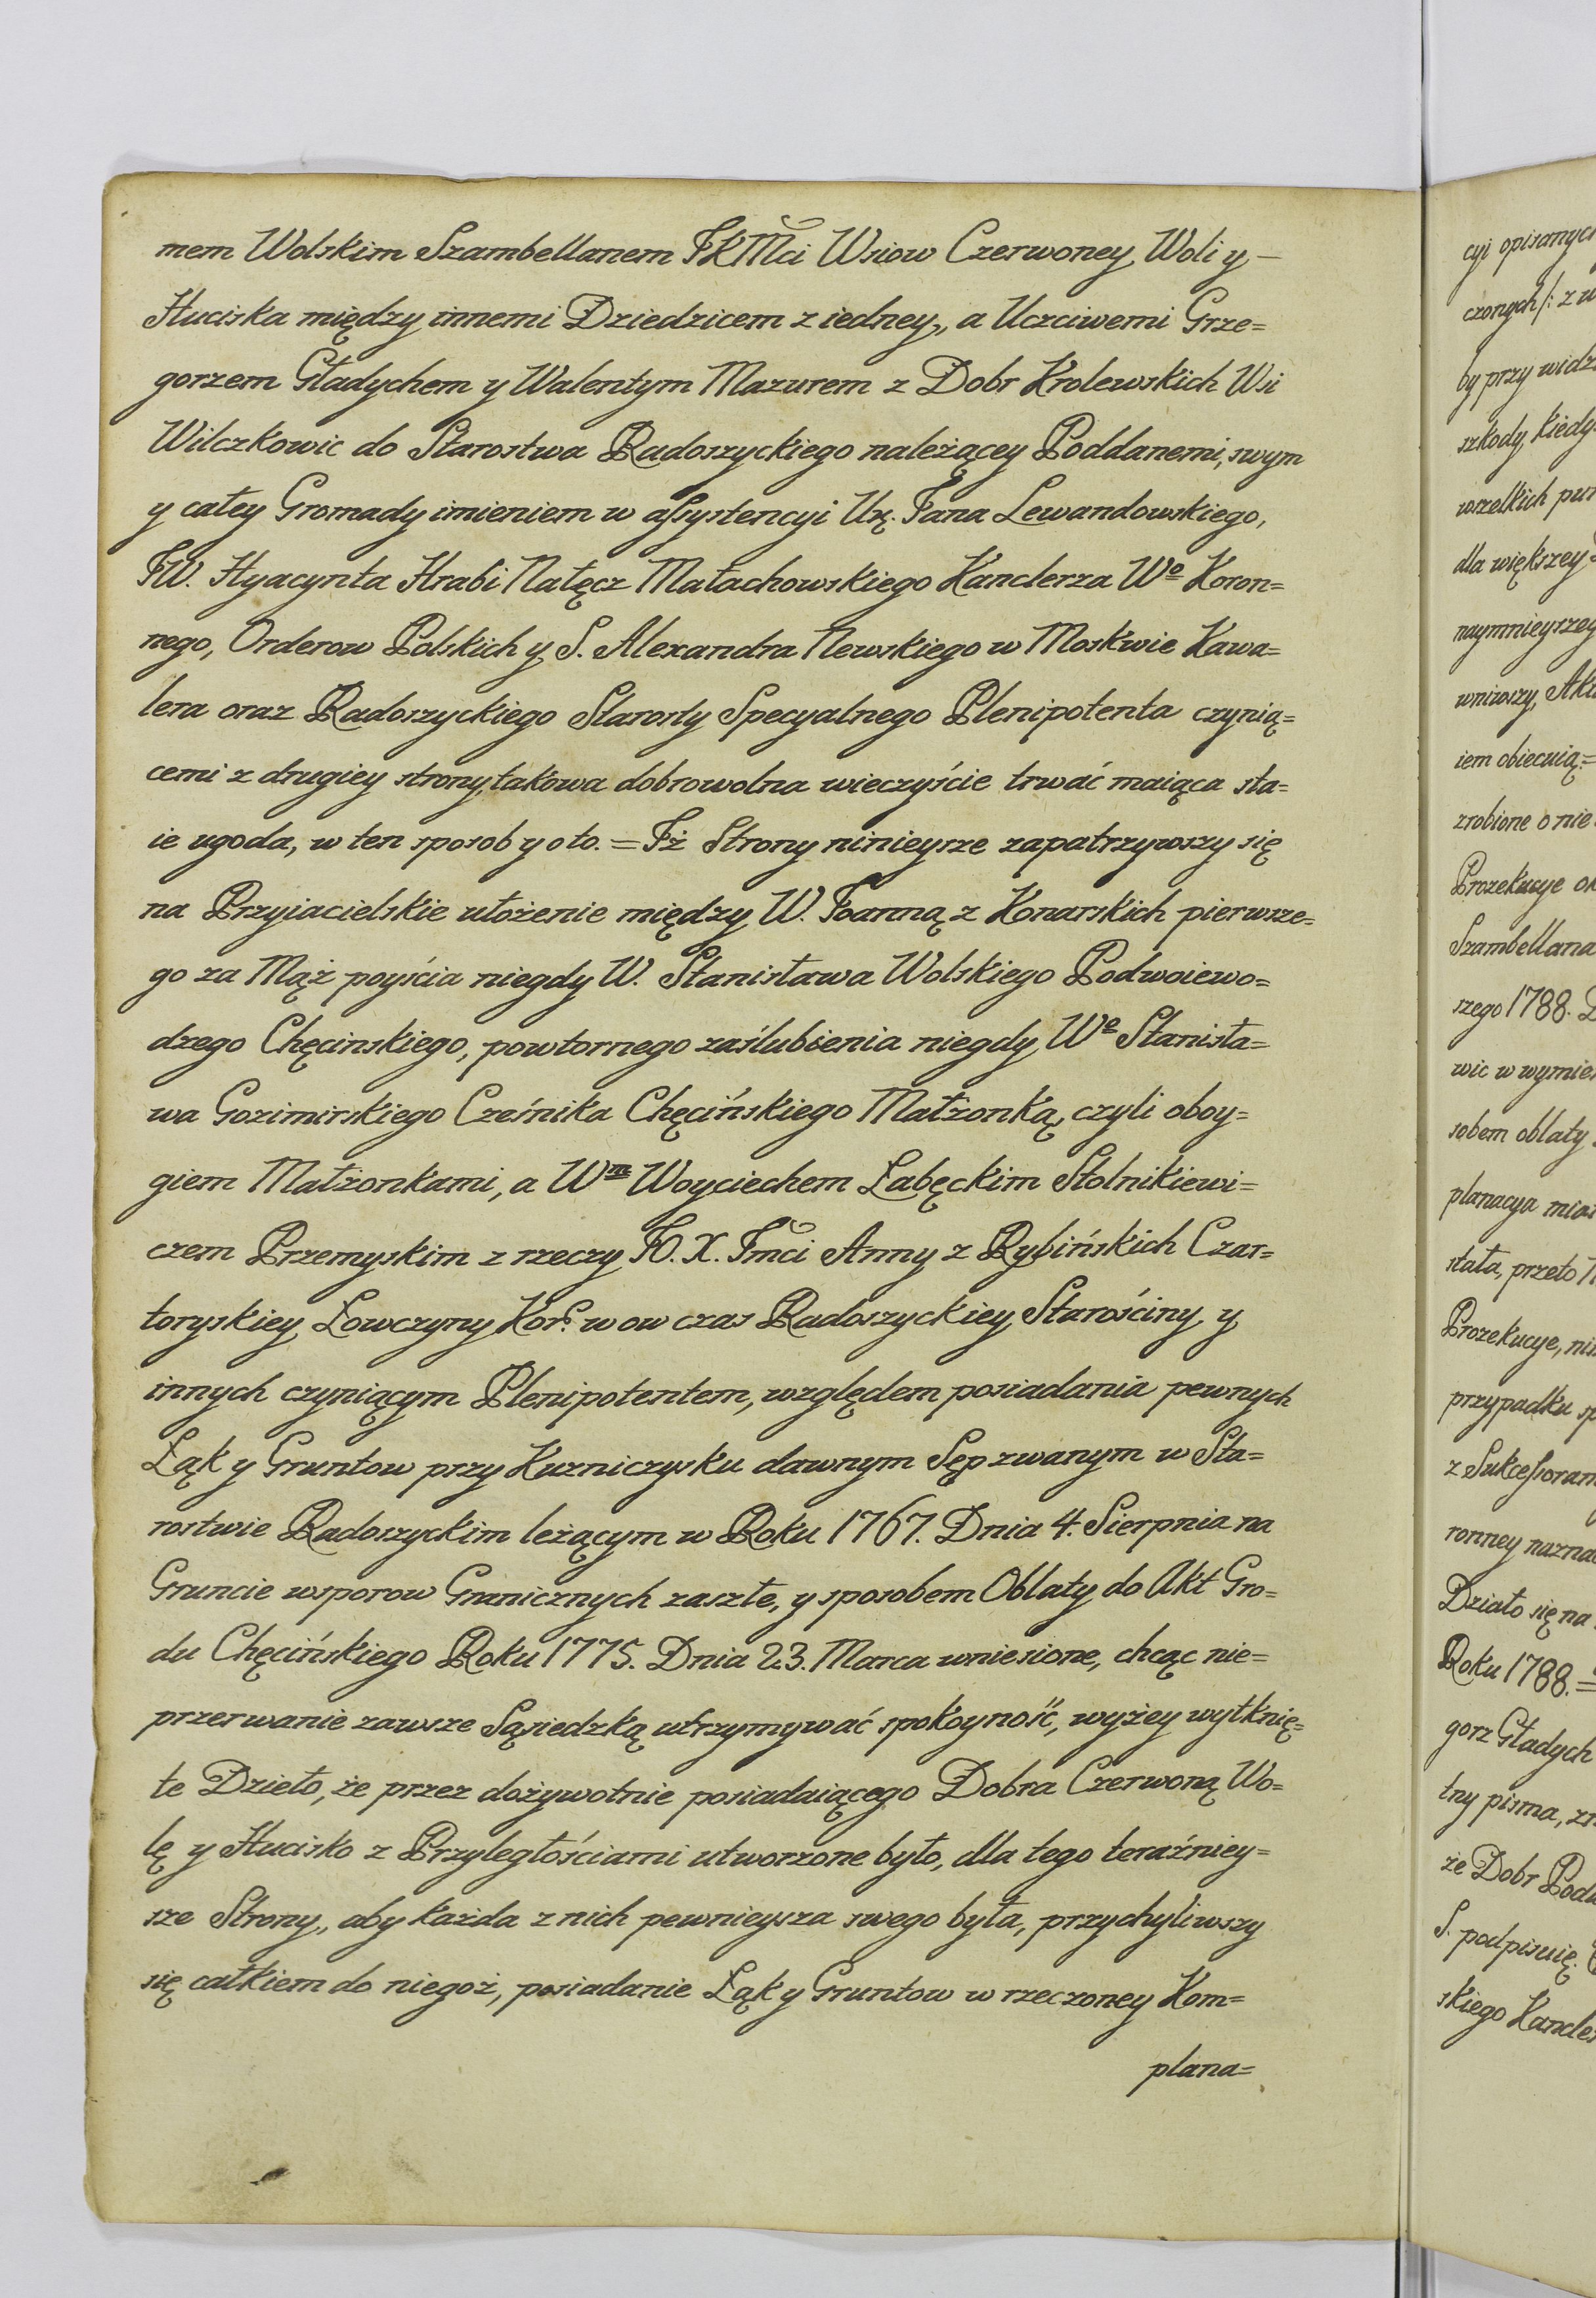 mem Wolskim Szambellanem JKMci Wsiow Czerwoney Woli y –
Huciska między innemi Dziedzicem z iedney, a Uczciwemi Grze=
gorzem Gładychem y Walentym Mazurem z Dobr Krolewskich Wsi
Wilczkowic do Starostwa Radoszyckiego należącey Poddanemi, swym
y całey Gromady imieniem w assystencyi Ur. Jana Lewandowskiego,
JW. Hyacynta Hrabi Nałęcz Małachowskiego Kanclerza Wo Koron=
nego, Orderow Polskich y S. Alexandra Newskiego w Moskwie Kawa=
lera oraz Radoszyckiego Starosty Specyalnego Plenipotenta czynią=
cemi z drugiey strony, takowa dobrowolna wieczyście trwać maiąca sta=
ie ugoda, w ten sposob y oto. = Jż Strony ninieysze zapatrzywszy się
na Przyiacielskie ułożenie między W. Joanną z Konarskich pierwsze=
go za Mąż poyścia niegdy W. Stanisława Wolskiego Podwoiewo=
dzego Chęcinskiego, powtornego zaślubienia niegdy We Stanisła=
wa Gozimirskiego Cześnika Chęcińskiego Małżonką, czyli oboy=
giem Małżonkami, a Wm Woyciechem Łabęckim Stolnikiewi=
czem Przemyskim z rzeczy JO. X. Jmci Anny z Rybińskich Czar=
toryskiey Łowczyny Kor. w ow czas Radoszyckiey Starościny y
innych czyniącym Plenipotentem, względem posiadania pewnych
Łąk y Gruntow przy Kuzniczysku dawnym Sęp zwanym w Sta=
rostwie Radoszyckim leżącym w Roku 1767. Dnia 4. Sierpnia na
Gruncie wsporow Granicznych zaszłe, y sposobem Oblaty do Akt Gro=
du Chęcińskiego Roku 1775. Dnia 23. Marca wniesione, chcąc nie=
przerwanie zawsze Sąsiedzką utrzymywać spokoyność, wyżey wytknię=
te Dzieło, że przez dożywotnie posiadaiącego Dobra Czerwoną Wo=
lę y Hucisko z Przyległościami utworzone było, dla tego teraźniey=
sze Strony, aby każda z nich pewnieysza swego była, przychyliwszy
się całkiem do niegoż, posiadanie Łąk y Gruntow w rzeczoney Kom=
plana=
cyi opisanych
czonych /: z w
by przy
szkody kiedy
wszelkich
dla większey
naymnieyszey
wniwszy,
iem obiecuią=
zrobione o nie
Prozekucye
Szambellana
szego 1788.
wic w
sobem oblaty
planacya
stała, przeto
Prozekucye,
przypadku
z
ronney
Działo się na
Roku 1788. =
gorz Gładych
tny pisma,
że Dobr
S. podpisuię.
skiego